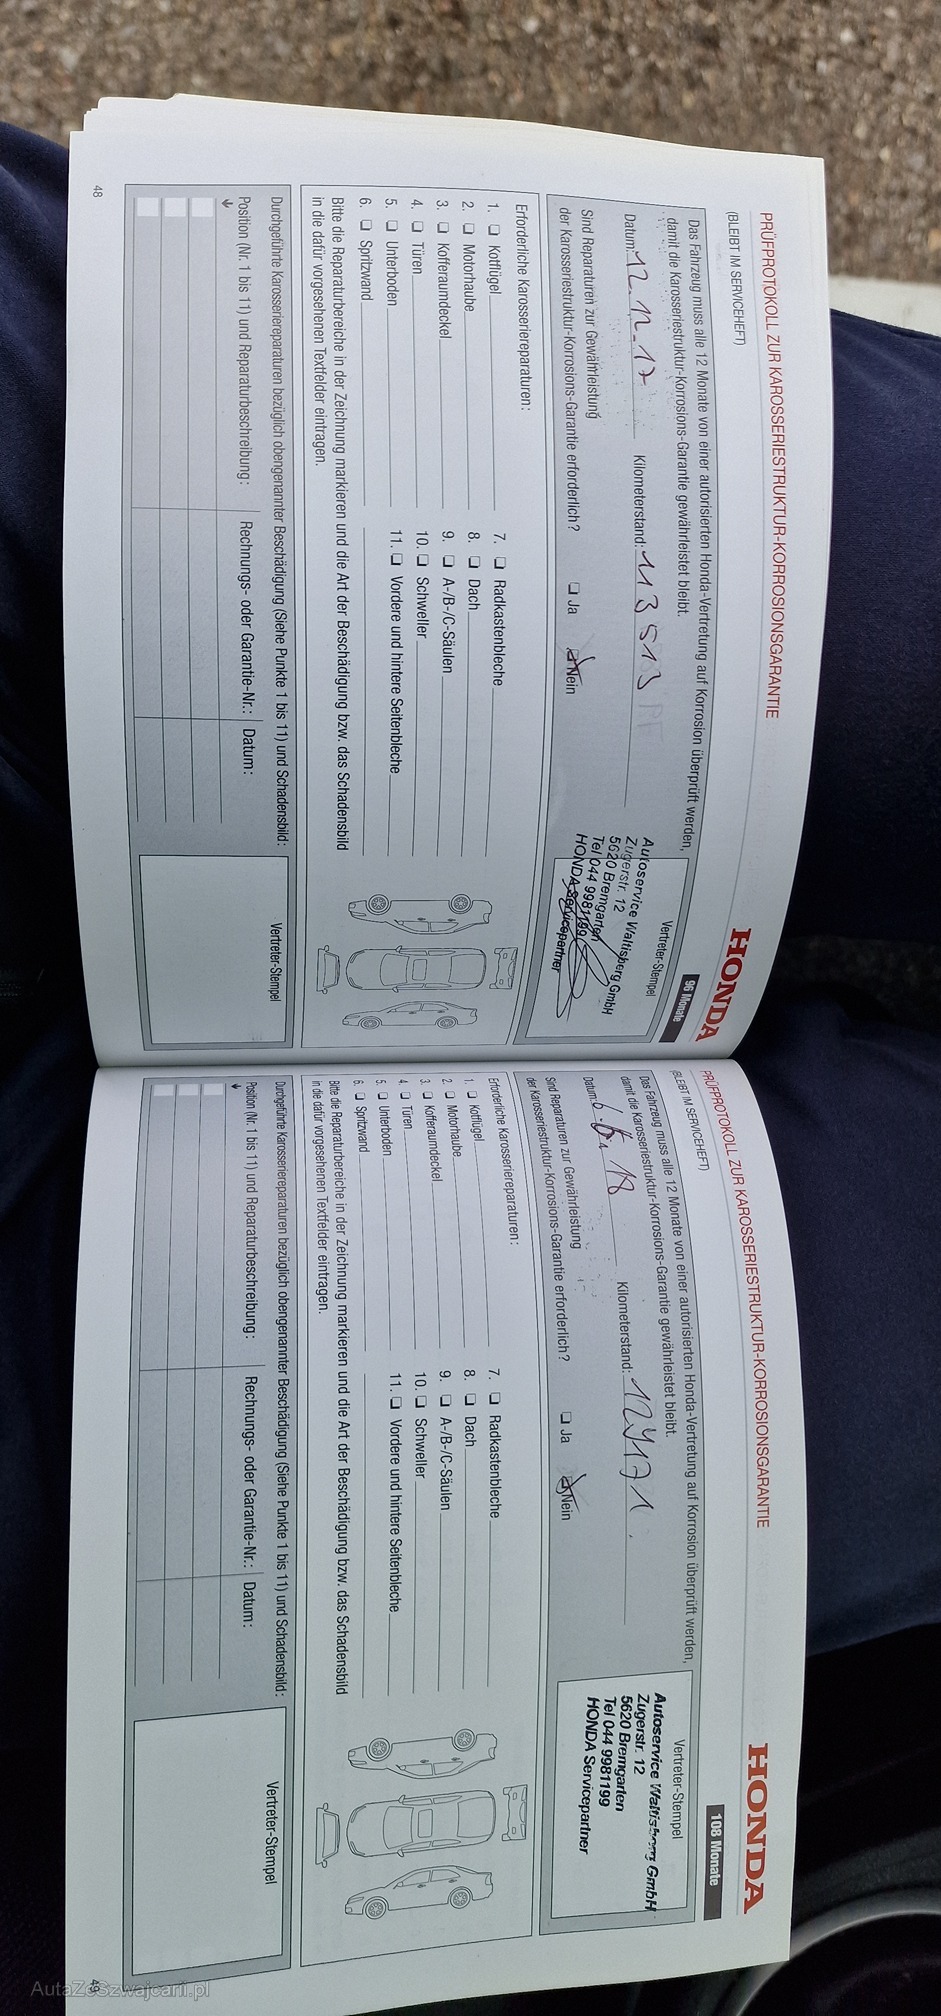 PRÜFPROTOKOLL ZUR KAROSSERIESTRUKTUR-KORROSIONSGARANTIE
HONDA
(BLEIBT IM SERVICEHEFT)
96 Monate
Das Fahrzeug muss alle 12 Monate von einer autorisierten Honda-Vertretung auf Korrosion überprüft werden,
damit die Karosseriestruktur-Korrosions-Garantie gewährleistet bleibt.
Datum: 12.12.17 Kilometerstand: 113513
Sind Reparaturen zur Gewährleistung
der Karosseriestruktur-Korrosions-Garantie erforderlich? Ja Nein
Vertreter-Stempel
Autoservice Waltisberg GmbH
Zugerstr. 12
5620 Bremgarten
Tel 044 9981199
HONDA Servicepartner
Erforderliche Karosseriereparaturen:
1. Kotflügel 7. Radkastenbleche
2. Motorhaube 8. Dach
3. Kofferaumdeckel 9. A-/B-/C-Säulen
4. Türen 10. Schweller
5. Unterboden 11. Vordere und hintere Seitenbleche
6. Spritzwand
Bitte die Reparaturbereiche in der Zeichnung markieren und die Art der Beschädigung bzw. das Schadensbild
in die dafür vorgesehenen Textfelder eintragen.
Durchgeführte Karosseriereparaturen bezüglich obengenannter Beschädigung (Siehe Punkte 1 bis 11) und Schadensbild:
Position (Nr. 1 bis 11) und Reparaturbeschreibung: Rechnungs- oder Garantie-Nr.: Datum:
Vertreter-Stempel
48
PRÜFPROTOKOLL ZUR KAROSSERIESTRUKTUR-KORROSIONSGARANTIE
HONDA
(BLEIBT IM SERVICEHEFT)
108 Monate
Das Fahrzeug muss alle 12 Monate von einer autorisierten Honda-Vertretung auf Korrosion überprüft werden,
damit die Karosseriestruktur-Korrosions-Garantie gewährleistet bleibt.
Datum: 18 Kilometerstand: 129171
Sind Reparaturen zur Gewährleistung
der Karosseriestruktur-Korrosions-Garantie erforderlich? Ja Nein
Vertreter-Stempel
Autoservice Waltisberg GmbH
Zugerstr. 12
5620 Bremgarten
Tel 044 9981199
HONDA Servicepartner
Erforderliche Karosseriereparaturen:
1. Kotflügel 7. Radkastenbleche
2. Motorhaube 8. Dach
3. Kofferaumdeckel 9. A-/B-/C-Säulen
4. Türen 10. Schweller
5. Unterboden 11. Vordere und hintere Seitenbleche
6. Spritzwand
Bitte die Reparaturbereiche in der Zeichnung markieren und die Art der Beschädigung bzw. das Schadensbild
in die dafür vorgesehenen Textfelder eintragen.
Durchgeführte Karosseriereparaturen bezüglich obengenannter Beschädigung (Siehe Punkte 1 bis 11) und Schadensbild:
Position (Nr. 1 bis 11) und Reparaturbeschreibung: Rechnungs- oder Garantie-Nr.: Datum:
Vertreter-Stempel
49
AutaZeSzwajcarii.pl